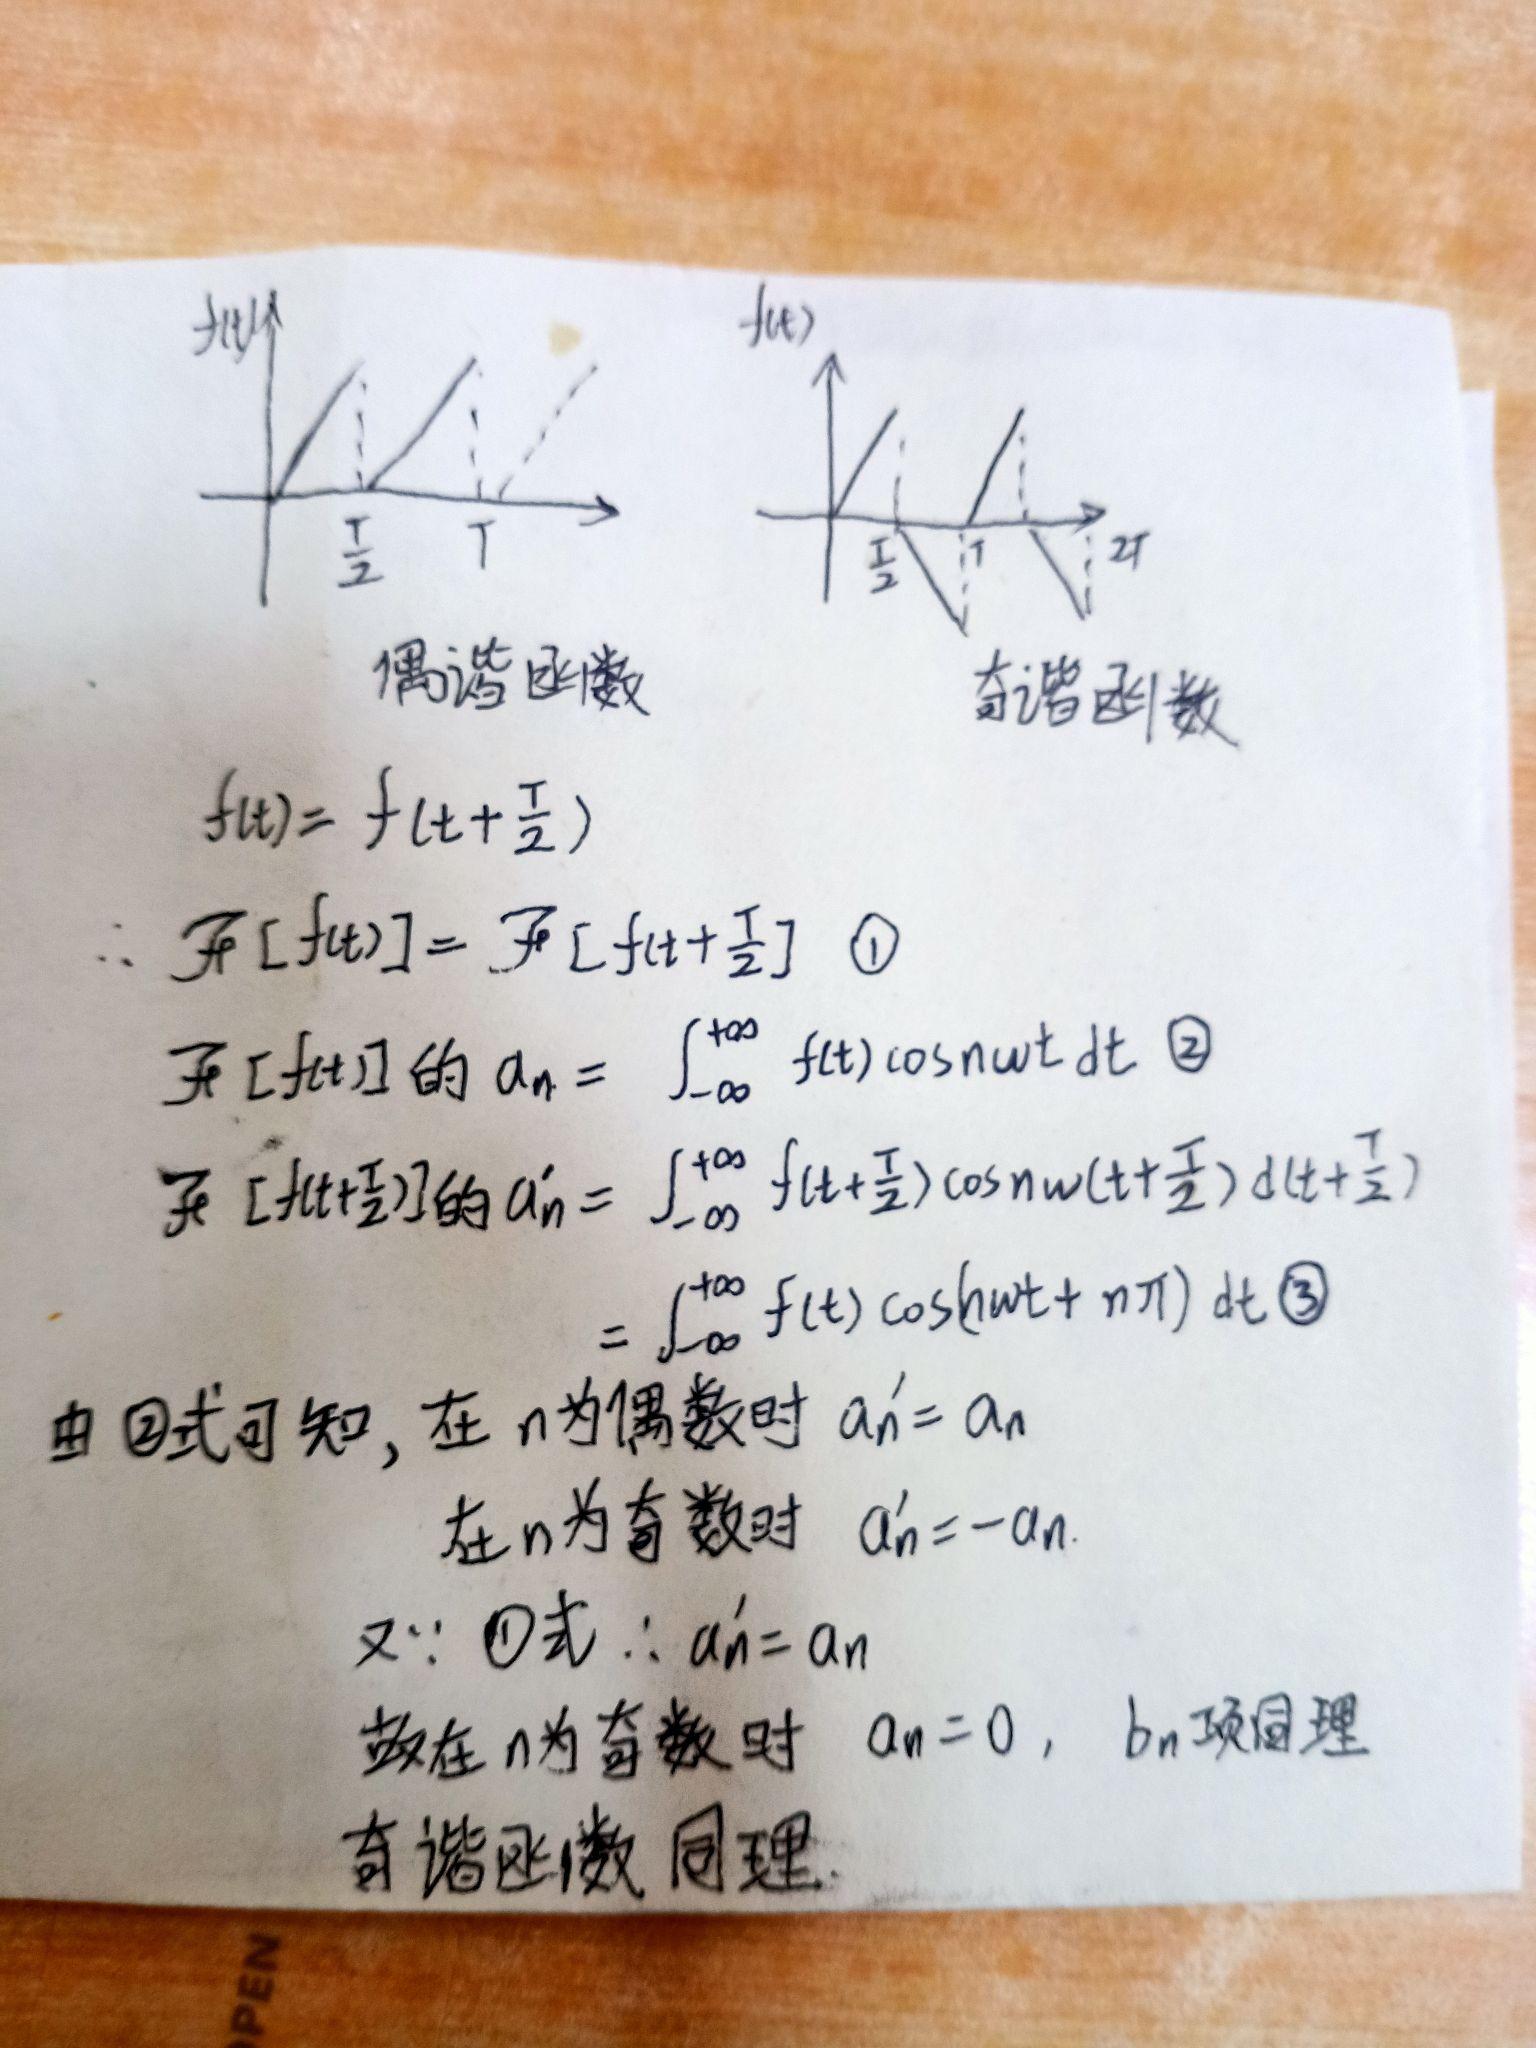 f(t) f(t)
T/2 T T/2 T 2T
偶谐函数 奇谐函数
f(t) = f(t+T/2)
∴ ℱ[f(t)] = ℱ[f(t+T/2] ①
ℱ[f(t)]的 an = ∫_{-∞}^{+∞} f(t) cosnwt dt ②
ℱ[f(t+T/2)]的 an' = ∫_{-∞}^{+∞} f(t+T/2) cosnw(t+T/2) d(t+T/2)
= ∫_{-∞}^{+∞} f(t) cos(nwt + nπ) dt ③
由②式可知, 在n为偶数时 an' = an
在n为奇数时 an' = -an.
又∵ ①式 ∴ an' = an
故在n为奇数时 an = 0, bn项同理
奇谐函数同理.
OPEN